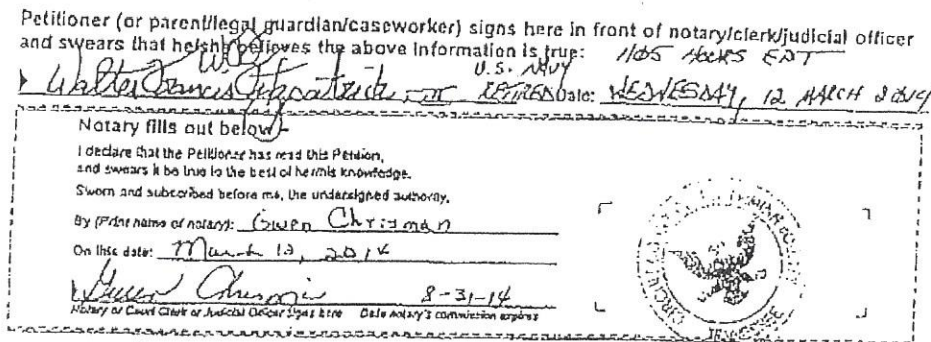 Petitioner (or parent/legal guardian/caseworker) signs here in front of notary/clerk/judicial officer
and swears that he/she believes the above information is true: 1105 HOURS EDT
Walter Francis Fitzpatrick III U.S. NAVY RETIRED Date: WEDNESDAY, 12 MARCH 2014
Notary fills out below
I declare that the Petitioner has read this Petition,
and swears it be true to the best of her/his knowledge.
Sworn and subscribed before me, the undersigned authority,
By (Print name of notary): Gwen Chrisman
On this date: March 12, 2014
8-31-14
Notary or Court Clerk or Judicial Officer signs here Date notary's commission expires
CIRCUIT COURT
TENNESSEE